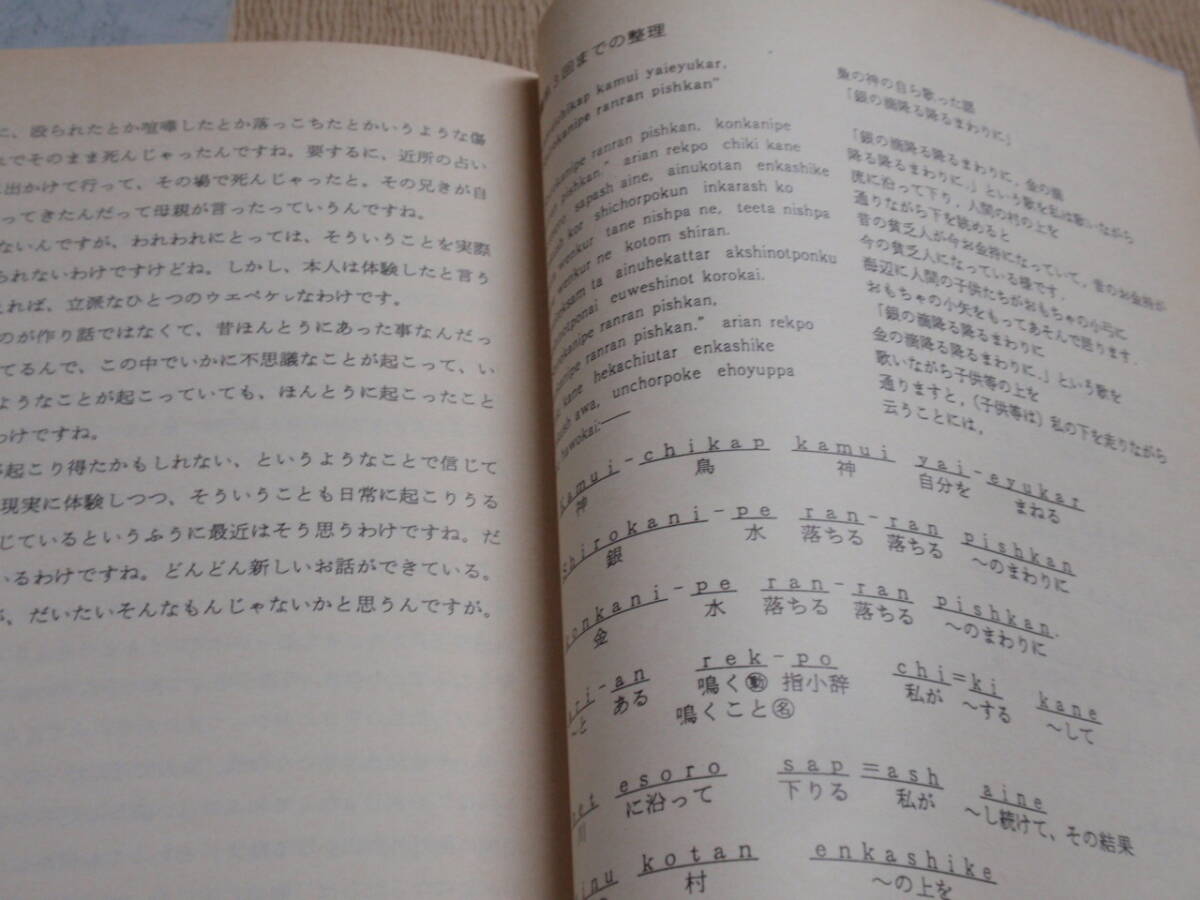 に、殴られたとか喧嘩したとか落っこちたとかいうような傷
でそのまま死んじゃったんですね。要するに、近所の占い
出かけて行って、その場で死んじゃったと。その兄きが自
ってきたんだって母親が言ったっていうんですね。
ないんですが、われわれにとっては、そういうことを実際
られないわけですけどね。しかし、本人は体験したと言う
れば、立派なひとつのウエペケㇾなわけです。
のが作り話ではなくて、昔ほんとうにあった事なんだっ
てるんで、この中でいかに不思議なことが起こって、い
ようなことが起こっていても、ほんとうに起こったこと
わけですね。
起こり得たかもしれない、というようなことで信じて
現実に体験しつつ、そういうことも日常に起こりうる
じているというふうに最近はそう思うわけですね。だ
いるわけですね。どんどん新しいお話ができている。
、だいたいそんなもんじゃないかと思うんですが。
3回までの整理
chikap kamui yaieyukar,
rokanipe ranran pishkan"
kanipe ranran pishkan, konkanipe
pishkan." arian rekpo chiki kane
sapash aine, ainukotan enkashike
kor shichorpokun inkarash ko
wenkur tane nishpa ne, teeta nishpa
wenkur ne kotom shiran.
ksam ta ainuhekattar akshinotponku
notponai euweshinot korokai.
okanipe ranran pishkan,
nipe ranran pishkan." arian rekpo
kane hekachiutar enkashike
ash awa, unchorpoke ehoyuppa
hawokai:
梟の神の自ら歌った謡
「銀の滴降る降るまわりに」
「銀の滴降る降るまわりに，金の滴
降る降るまわりに．」という歌を私は歌いながら
流に沿って下り，人間の村の上を
通りながら下を眺めると
昔の貧乏人が今お金持になっていて，昔のお金持が
今の貧乏人になっている様です．
海辺に人間の子供たちがおもちゃの小弓に
おもちゃの小矢をもってあそんで居ります．
「銀の滴降る降るまわりに
金の滴降る降るまわりに．」という歌を
歌いながら子供等の上を
通りますと，（子供等は）私の下を走りながら
云うことには，
kamui-chikap kamui yai-eyukar
神 鳥 神 自分を まねる
shirokani-pe ran-ran pishkan
銀 水 落ちる 落ちる ～のまわりに
konkani-pe ran-ran pishkan.
金 水 落ちる 落ちる ～のまわりに
ari-an rek-po chi=ki kane
～と ある 鳴く㊙動 指小辞 私が ～する ～して
鳴くこと㊔
pet esoro sap =ash aine
川 に沿って 下りる 私が ～し続けて，その結果
inu kotan enkashike
村 ～の上を